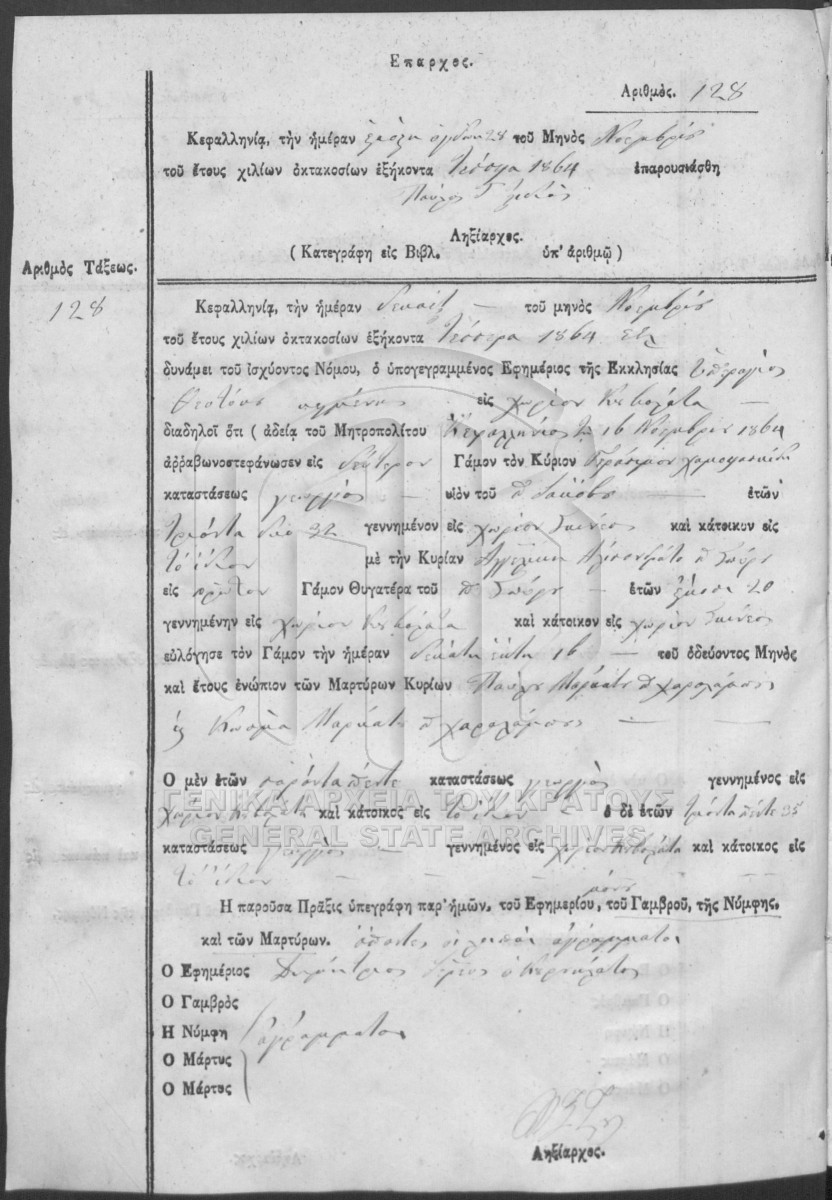 Επαρχος.
Αριθμὸς. 128
Κεφαλληνίᾳ, τὴν ἡμέραν 28 τοῦ Μηνὸς Νοεμβρίου
τοῦ ἔτους χιλίων ὀκτακοσίων ἑξήκοντα τέσσερα 1864 ἐπαρουσιάσθη
Παῦλος
Ληξίαρχος.
( Κατεγράφη εἰς Βιβλ. ὑπ' ἀριθμῷ )
Αριθμὸς Τάξεως.
128
Κεφαλληνίᾳ, τὴν ἡμέραν δεκαέξ — τοῦ μηνὸς Νοεμβρίου
τοῦ ἔτους χιλίων ὀκτακοσίων ἑξήκοντα τέσσερα 1864
δυνάμει τοῦ ἰσχύοντος Νόμου, ὁ ὑπογεγραμμένος Εφημέριος τῆς Εκκλησίας Ὑπεραγίας
Θεοτόκου εἰς χωρίον —
διαδηλοῖ ὅτι ( ἀδείᾳ τοῦ Μητροπολίτου Κεφαλληνίας 16 Νοεμβρίου 1864
ἀῤῥαβωνοστεφάνωσεν εἰς δεύτερον Γάμον τὸν Κύριον Γεράσιμον
καταστάσεως γεωργὸς — υἱὸν τοῦ π Ἰακώβου — ἐτῶν
τριάντα δύο 32 γεννημένον εἰς χωρίον καὶ κάτοικον εἰς
τὸ ἴδιον μὲ τὴν Κυρίαν Ἀγγελικὴ π Σπύρου
εἰς πρῶτον Γάμον Θυγατέρα τοῦ π Σπύρου — ἐτῶν εἴκοσι 20
γεννημένην εἰς χωρίον καὶ κάτοικον εἰς χωρίον
εὐλόγησε τὸν Γάμον τὴν ἡμέραν δεκάτη ἕκτη 16 — τοῦ ὁδεύοντος Μηνὸς
καὶ ἔτους ἐνώπιον τῶν Μαρτύρων Κυρίων Παύλου Μαρκάτου π Χαραλάμπους
Κοσμᾶ Μαρκάτου π Χαραλάμπους — —
Ο μὲν ἐτῶν σαράντα πέντε καταστάσεως γεωργὸς γεννημένος εἰς
χωρίον καὶ κάτοικος εἰς τὸ ἴδιον — ὁ δὲ ἐτῶν τριάντα πέντε 35
ΓΕΝΙΚΑ ΑΡΧΕΙΑ ΤΟΥ ΚΡΑΤΟΥΣ
GENERAL STATE ARCHIVES
καταστάσεως γεωργὸς — γεννημένος εἰς χωρίον καὶ κάτοικος εἰς
τὸ ἴδιον — — —
μόνου
Η παροῦσα Πρᾶξις ὑπεγράφη παρ' ἡμῶν, τοῦ Εφημερίου, τοῦ Γαμβροῦ, τῆς Νύμφης,
καὶ τῶν Μαρτύρων. οἱ λοιποὶ ἀγράμματοι
Ο Εφημέριος Δημήτριος
Ο Γαμβρὸς
Η Νύμφη ἀγράμματοι
Ο Μάρτυς
Ο Μάρτυς
Ληξίαρχος.